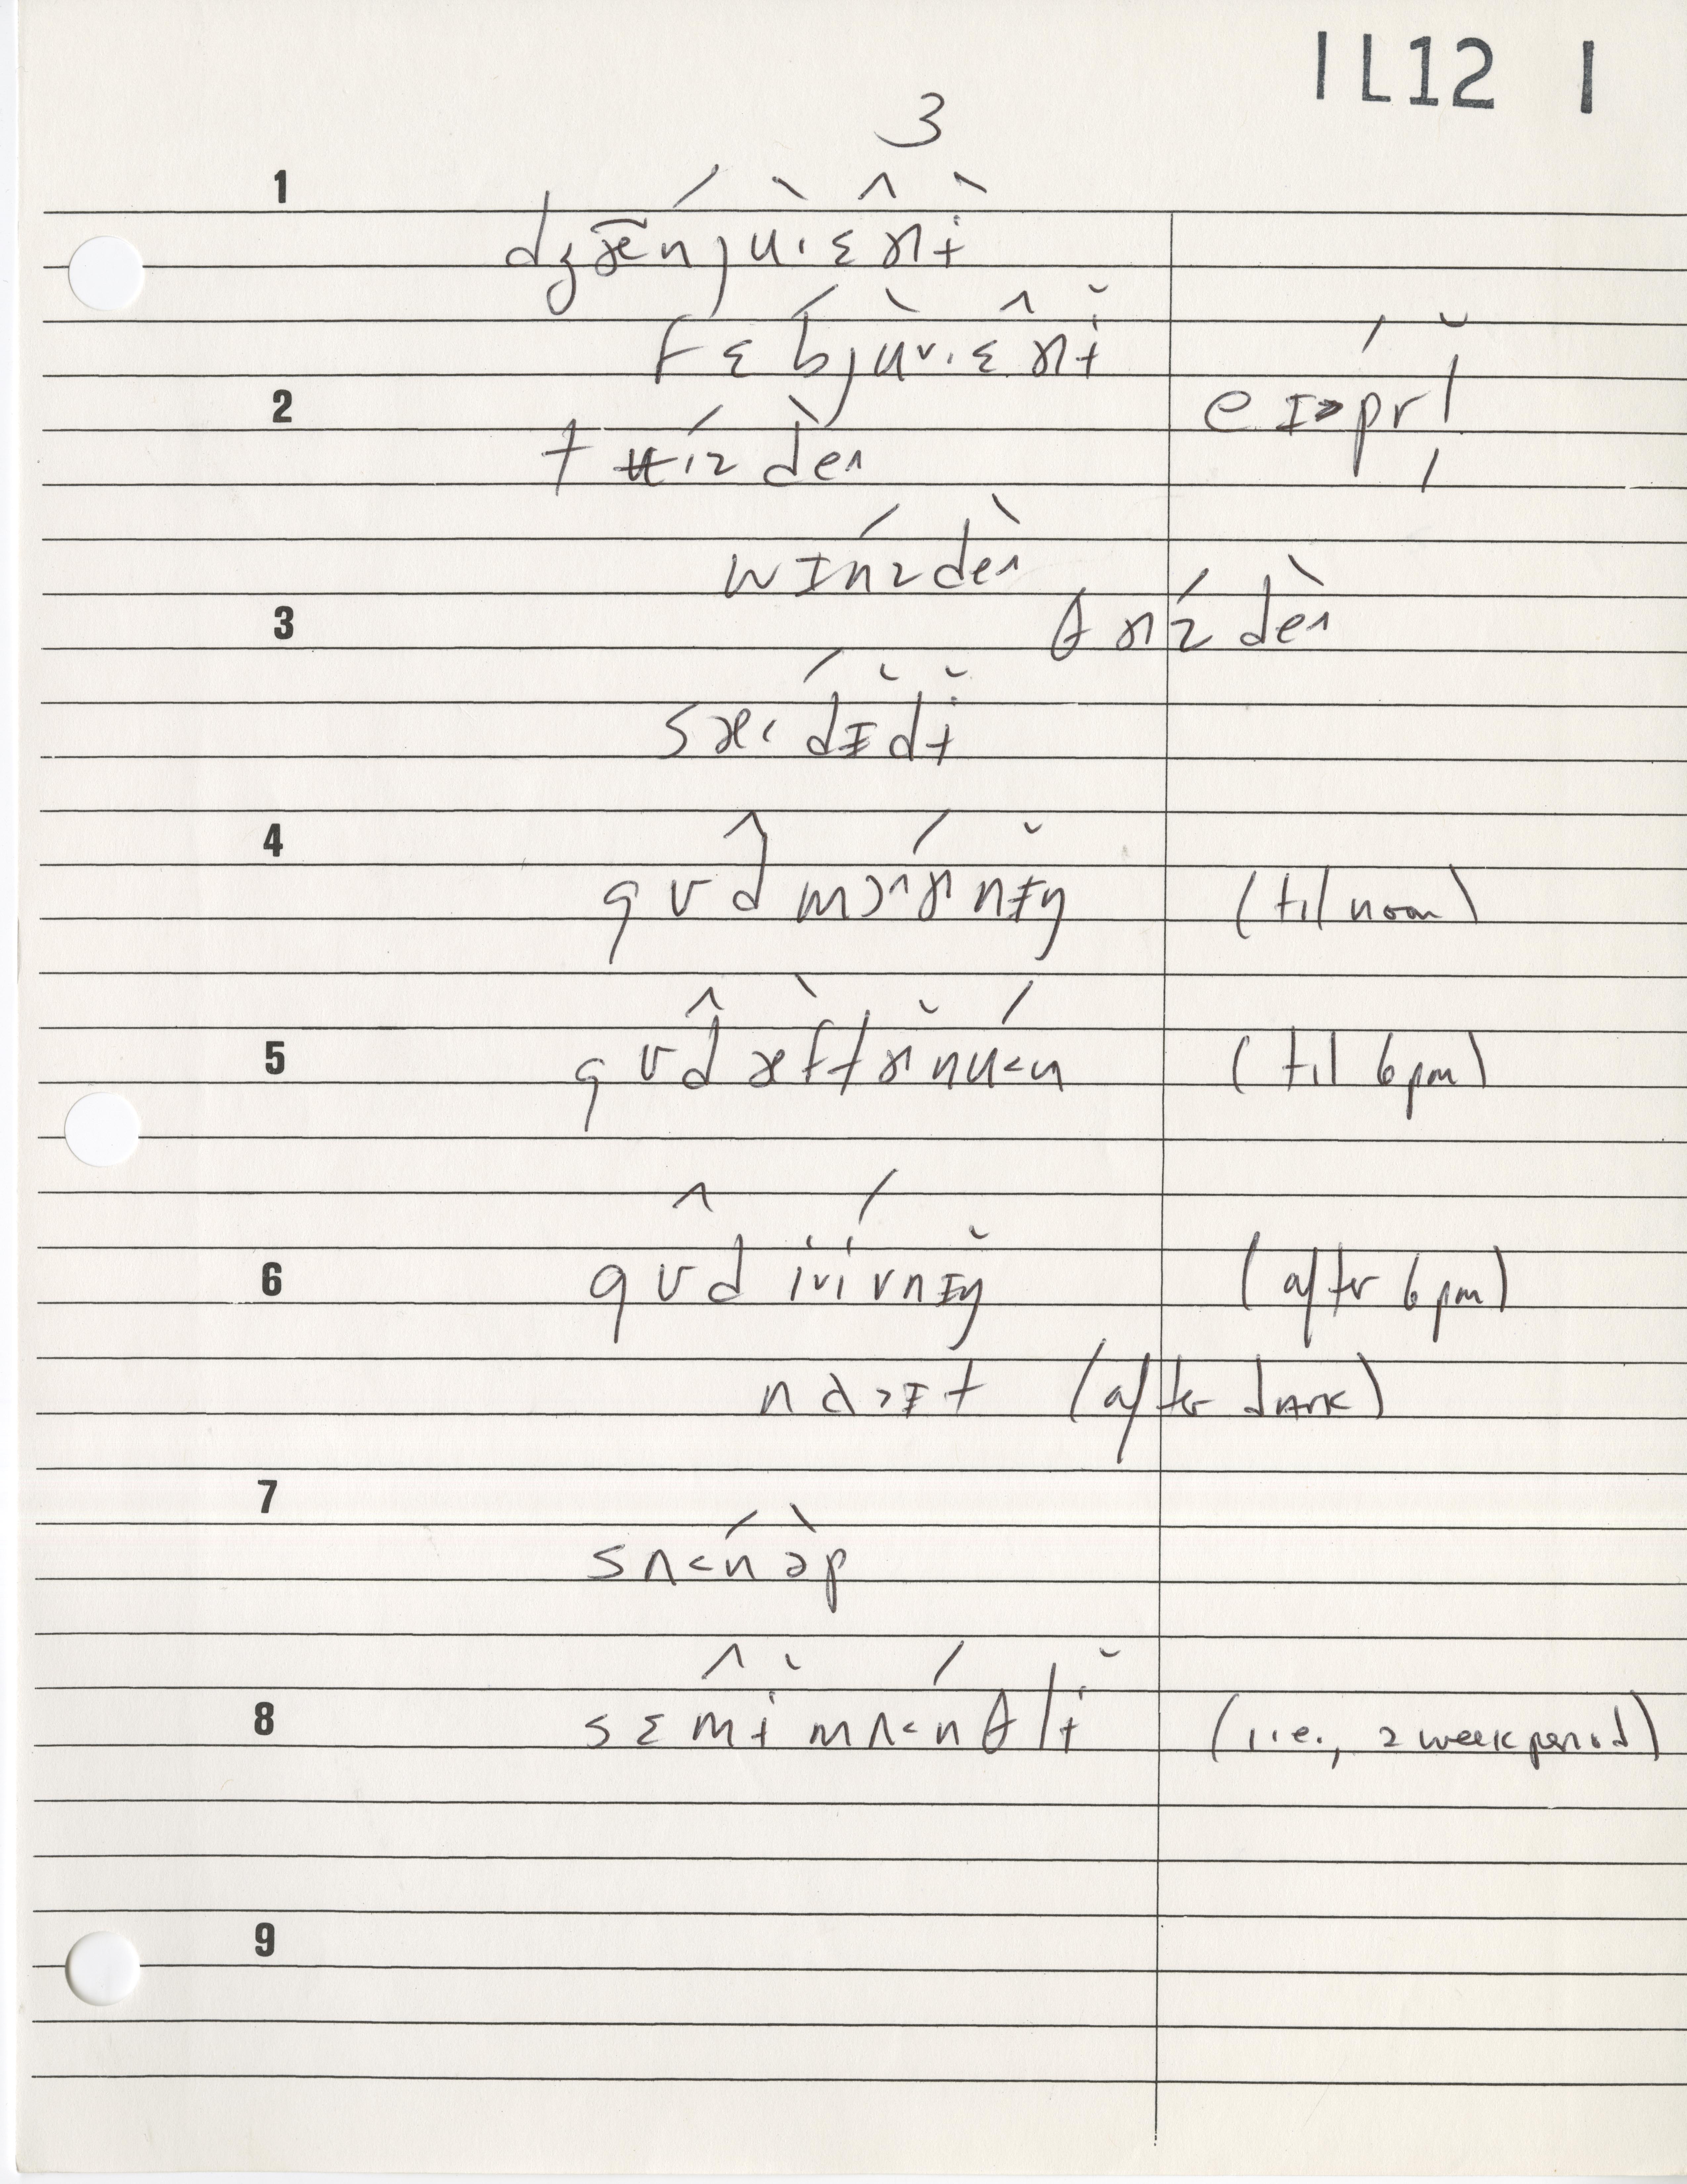 IL12 1
3
1
dʒæ̃njuˈɛɚi
fɛbjuˈɛɚi
2
eɪprl̩
tʉizdeɪ
wɪnzdeɪ
3
θɚzdeɪ
sædɪdi
4
gʊd mɔɚnɪŋ (til noon)
5
gʊd æftɚnun (til 6 pm)
6
gʊd ivnɪŋ (after 6 pm)
naɪt (after dark)
7
sʌnəp
8
sɛmi mʌnθli (i.e., 2 week period)
9